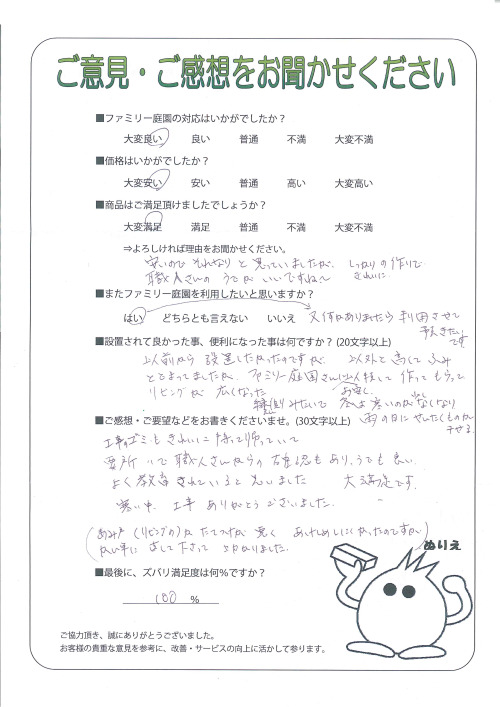 ご意見・ご感想をお聞かせください
■ファミリー庭園の対応はいかがでしたか？
大変良い 良い 普通 不満 大変不満
■価格はいかがでしたか？
大変安い 安い 普通 高い 大変高い
■商品はご満足頂けましたでしょうか？
大変満足 満足 普通 不満 大変不満
⇒よろしければ理由をお聞かせください。
安いので それなりと思っていましたが、しっかりの作りで
職人さんの うでが いいですね〜 きれいに
■またファミリー庭園を利用したいと思いますか？
はい どちらとも言えない いいえ 又何かありましたら利用させて
頂きたいです
■設置されて良かった事、便利になった事は何ですか？(20文字以上)
以前から 設置したかったのですが、以外と高くて ふみ
とどまってましたが、ファミリー庭園さんに 作ってもらって
リビングが 広くなった
縁側みたいで 冬は寒いのがなくなり
■ご感想・ご要望などをお書きくださいませ。(30文字以上) 雨の日に せんたくものが
干せる
工事のゴミも きれいに 持って帰っていて
要所々で 職人さんからの 確認もあり、とても良い
よく教育されていると思いました 大満足です。
寒い中、工事 ありがとうございました。
(あみ戸(リビングの)が たてつけが 悪く あけしめしにくかったのですが
ていねいに 直して下さって 助かりました。)
ぬりえ
■最後に、ズバリ満足度は何％ですか？
100 %
ご協力頂き、誠にありがとうございました。
お客様の貴重な意見を参考に、改善・サービスの向上に活かして参ります。